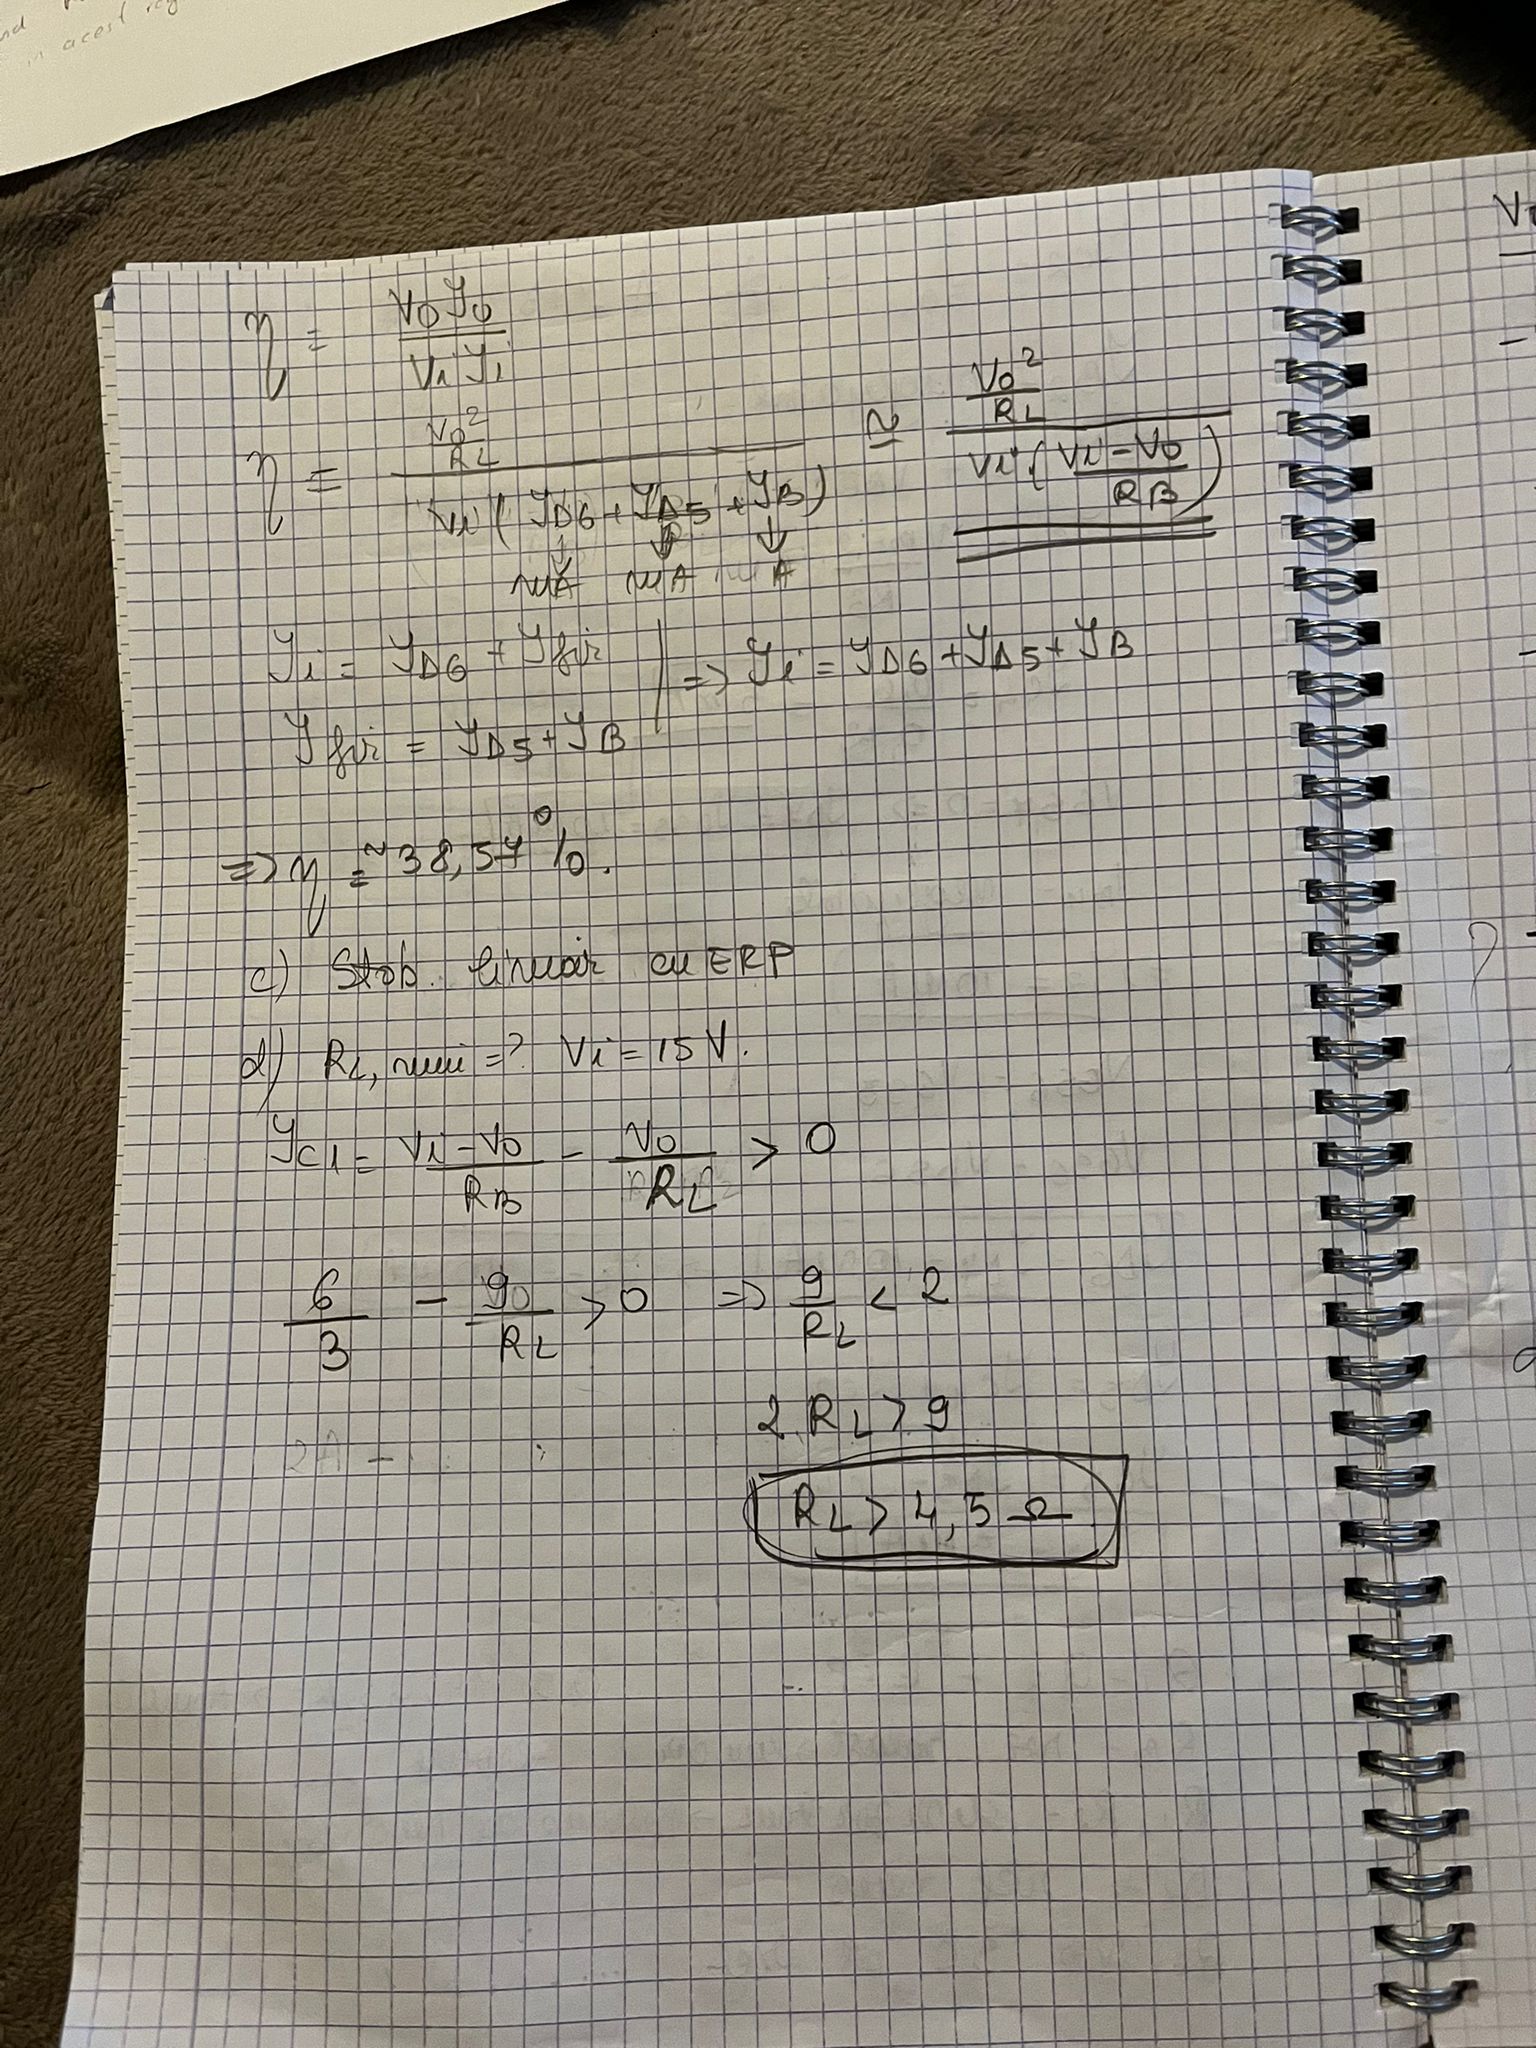 in acest reg
η = V0 I0 / Vi Ii
η = (V0² / RL) / (Vi (ID6 + ID5 + IB)) ≅ (V0² / RL) / (Vi · (Vi - V0 / RB))
↓ ↓ ↓
mA mA A
Ii = ID6 + Ifir | => Ii = ID6 + ID5 + IB
Ifir = ID5 + IB
=> η =~ 38,57 %.
c) Stab. liniar cu ERP
d) RL, min = ? Vi = 15 V.
IC1 = Vi - V0 / RB - V0 / RL > 0
6 / 3 - 90 / RL > 0 => 9 / RL < 2
2 RL > 9
2A - ...
RL > 4,5 Ω